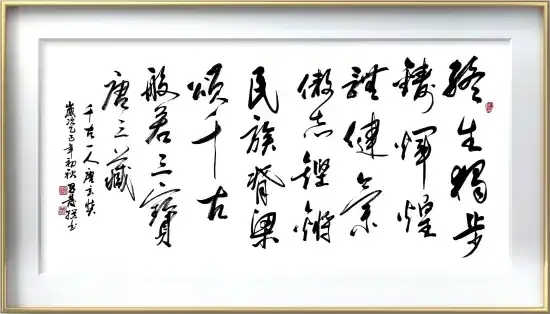 終生獨步
鑄輝煌
健氣
傲志鏗鏘
民族脊梁
頌千古
般若三寶
唐三藏
千古一人唐玄奘
歲次乙巳年初秋 書